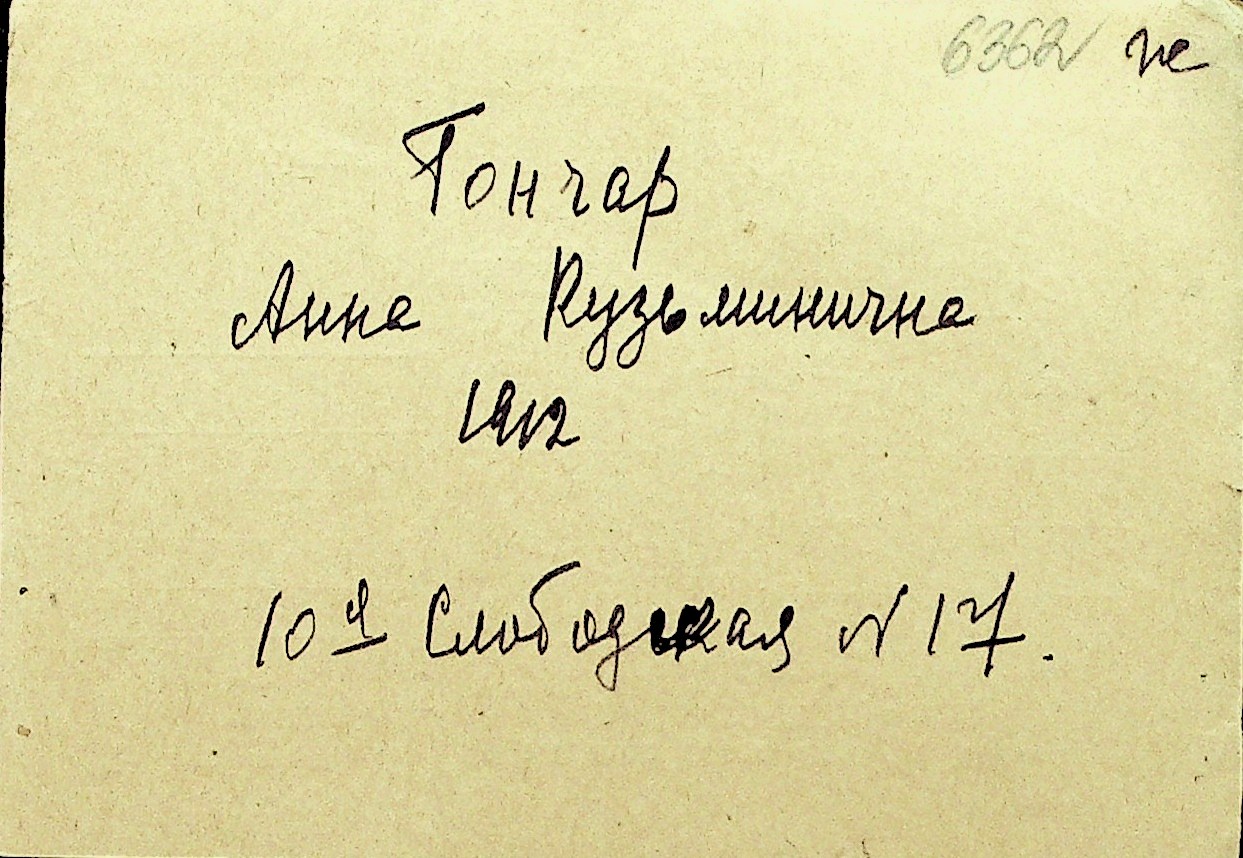 6362 же
Гончар
Анна Кузьминична
1912
10я Слободская N 17.